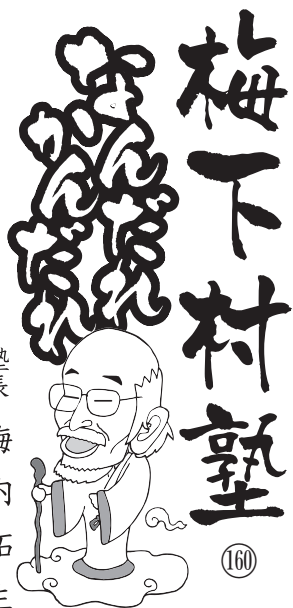 梅下村塾
160
なんだれ
かんだれ
塾長 梅内拓生